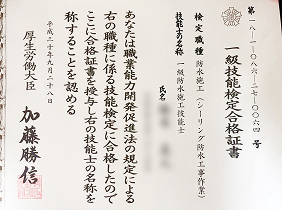 第一八-一-〇八六-二七-〇〇六四号
一級技能検定合格証書
検定職種 防水施工(シーリング防水工事作業)
技能士の名称 一級防水施工技能士
氏名
あなたは職業能力開発促進法の規定による
右の職種に係る技能検定に合格したので
ここに合格証書を授与し右の技能士の名称を
称することを認める
平成三十年九月二十八日
厚生労働大臣 加藤勝信